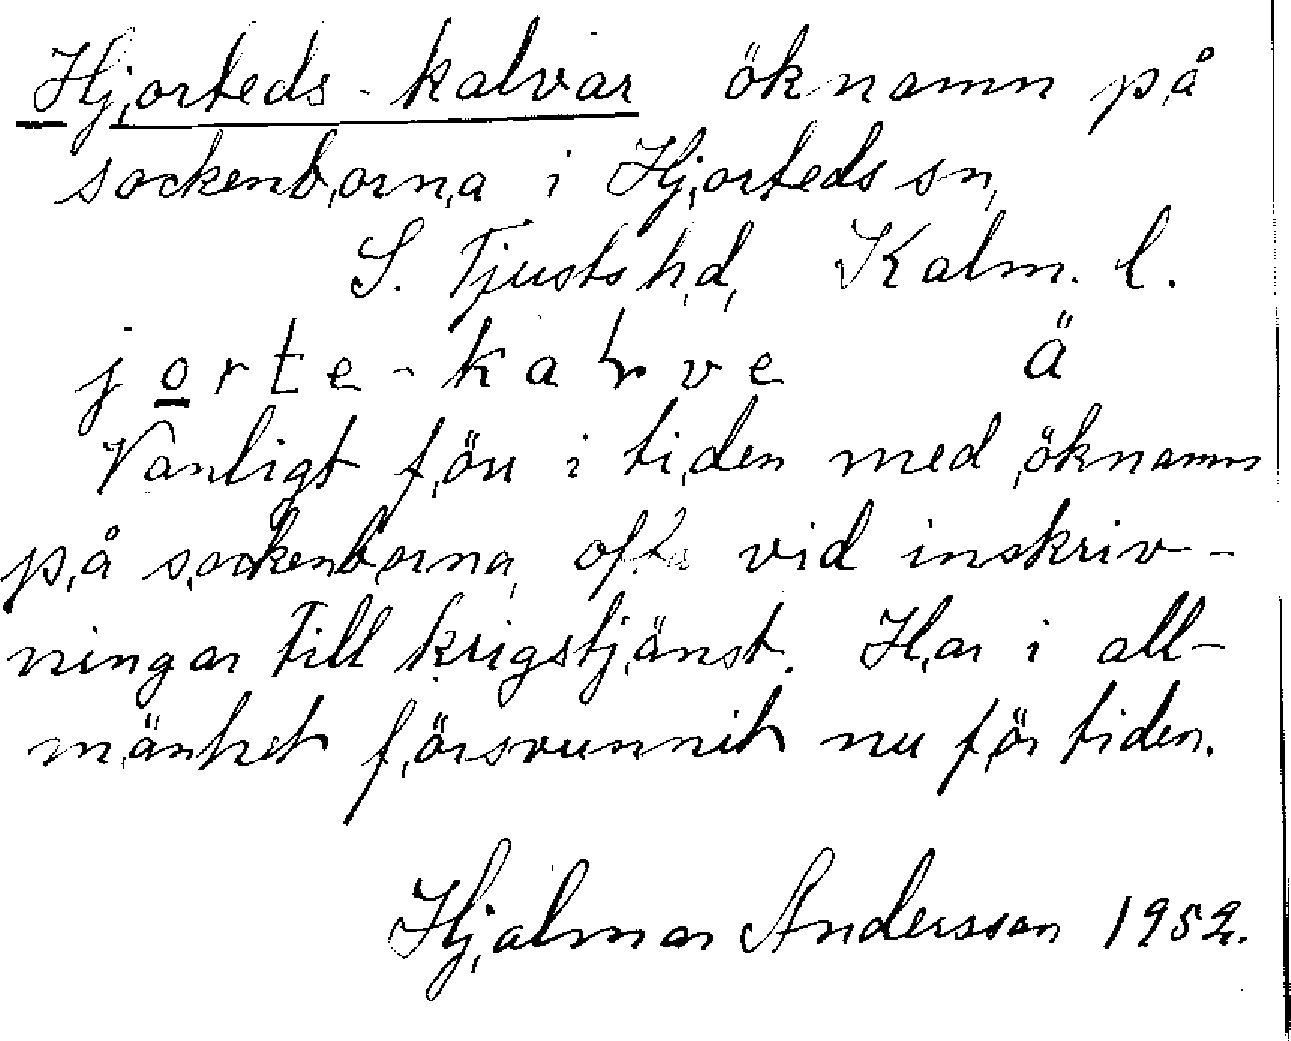 Hjorteds-kalvar öknamn på
sockenborna i Hjorteds sn,
S. Tjusts hd, Kalm. l.
jorte-kalve ä
Vanligt förr i tiden med öknamn
på sockenborna, ofta vid inskriv-
ningar till krigstjänst. Har i all-
mänhet försvunnit nu för tiden.
Hjalmar Andersson 1952.